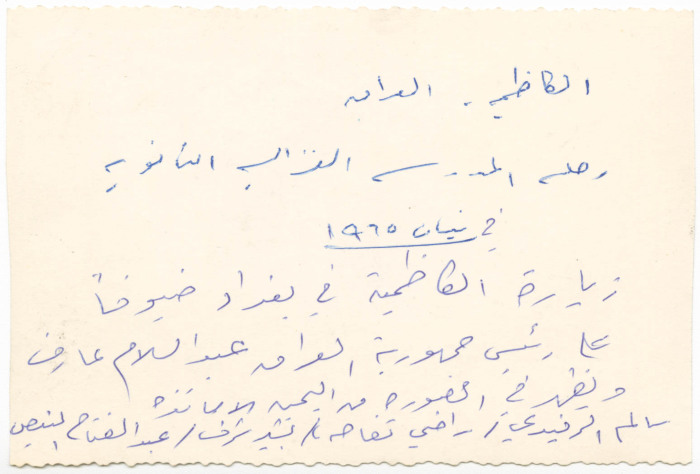 الكاظمية. العراق
رحلة المدرسة الغزالية الثانوية
في نيسان ١٩٦٥
زيارة الكاظمية في بغداد ضيوفاً
على رئيس جمهورية العراق عبد السلام عارف
ويظهر في الصورة من اليمين الاساتذة
سالم الرفيدي / راضي تفاحة / بشير شرف / عبد الفتاح